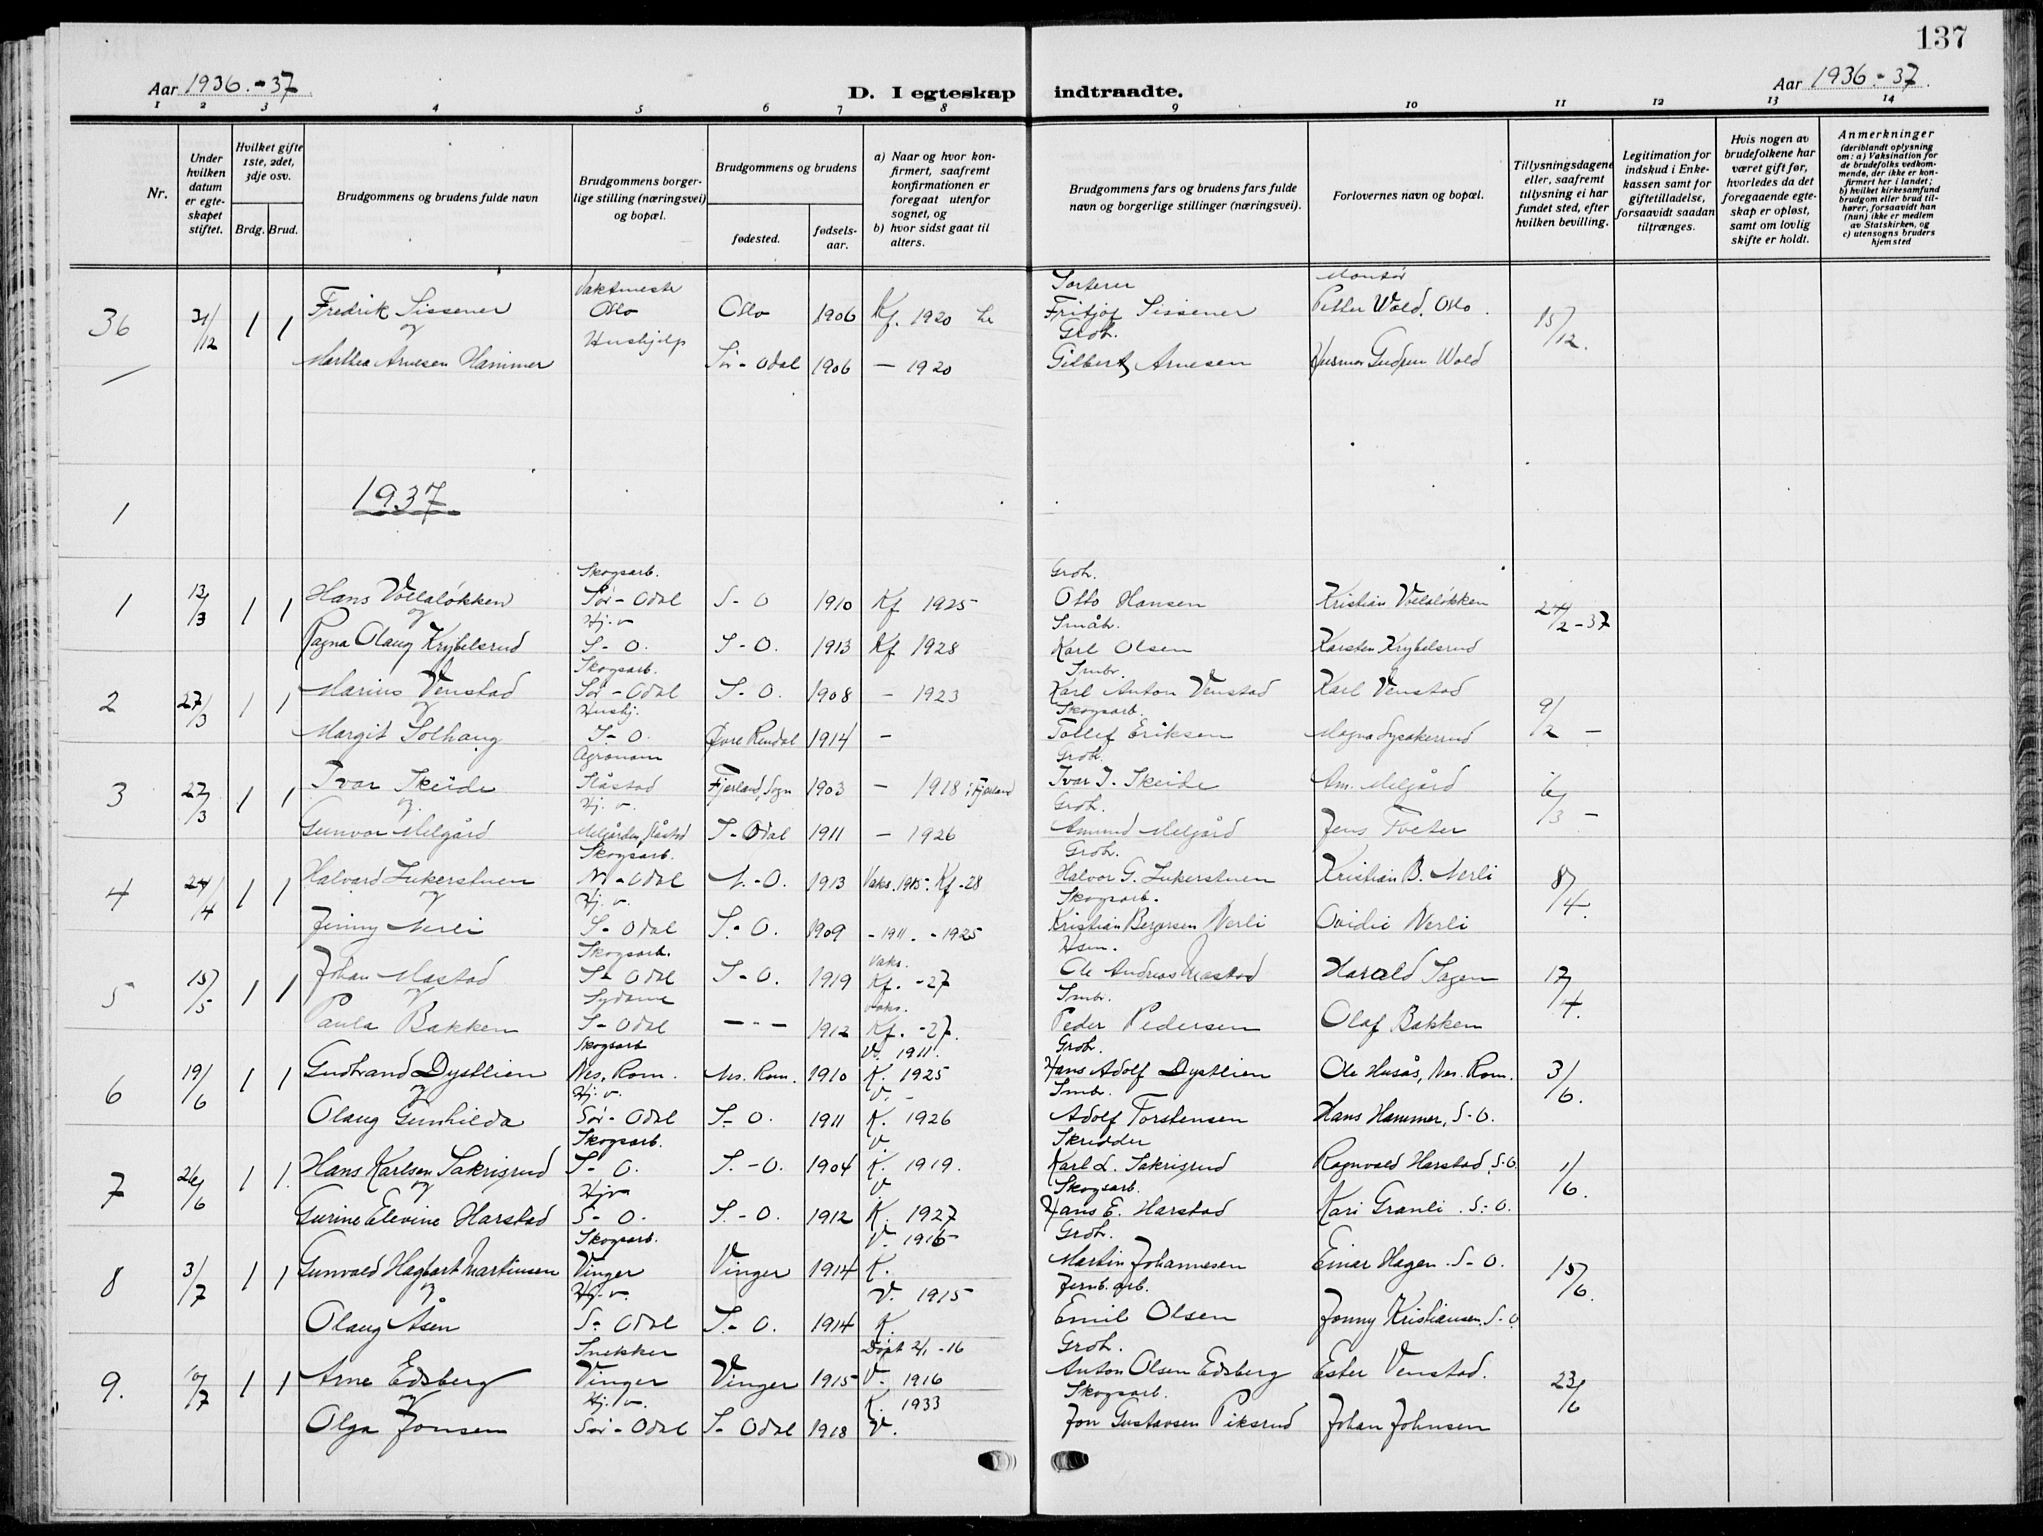 137
Aar 1936.-37
D. I egteskap indtraadte.
Aar 1936-37.
1 2 3 4 5 6 7 8 9 10 11 12 13 14
Nr.
Under hvilken datum er egteskapet stiftet.
Hvilket gifte 1ste, 2det, 3dje osv.
Brdg. Brud.
Brudgommens og brudens fulde navn
Brudgommens borgerlige stilling (næringsvei) og bopæl.
Brudgommens og brudens
fødested.
fødselsaar.
a) Naar og hvor konfirmert, saafremt konfirmationen er foregaat utenfor sognet, og
b) hvor sidst gaat til alters.
Brudgommens fars og brudens fars fulde navn og borgerlige stillinger (næringsvei).
Forlovernes navn og bopæl.
Tillysningsdagene eller, saafremt tillysning ei har fundet sted, efter hvilken bevilling.
Legitimation for indskud i Enkekassen samt for giftetilladelse, forsaavidt saadan tiltrænges.
Hvis nogen av brudefolkene har været gift før, hvorledes da det foregaaende egteskap er opløst, samt om lovlig skifte er holdt.
Anmerkninger (deriblandt oplysning om: a) Vaksination for de brudefolks vedkommende, der ikke er konfirmert her i landet; b) hvilket kirkesamfund brudgom eller brud tilhører, forsaavidt han (hun) ikke er medlem av Statskirken, og c) utensogns bruders hjemsted
Vaktmester Sorterer Montør
36 31/12 1 1 Fredrik Sissener Oslo Oslo 1906 Kf. 1920 Fritjof Sissener Petter Wold, Oslo. 15/12.
og Hushjelp Grdbr.
Marthea Arnesen Hammer Sør-Odal 1906 — 1920 Gilbert Arnesen Husmor Gudrun Wold
1 1937
Skogsarb. Grdbr.
1 13/3 1 1 Hans Vollaløkken Sør-Odal S-O 1910 Kf 1925 Otto Hansen Kristian Vollaløkken 24/2-37
og Hj. v. Småbr.
Ragna Olaug Krybelsrud S-O. S-O. 1913 Kf 1928 Karl Olsen Karsten Krybelsrud
Skogsarb. Smbr.
2 27/3 1 1 Marius Venstad Sør-Odal S-O. 1908 - 1923 Karl Anton Venstad Karl Venstad 9/2 -
og Hushj. Skogsarb.
Margit Solhaug S-O. Øvre Rendal 1914 - Tollef Eriksen Magna
Agronom Grdbr.
3 27/3 1 1 Ivar Skeide Slåstad Fjærland, Sogn 1903 - 1918 i Fjærland Ivar J. Skeide Am. Melgård 6/3 -
og Hj. v. Grdbr.
Gunvor Melgård Melgården, Slåstad S-Odal 1911 - 1926 Amund Melgård Jens Tveter
Skogsarb. Grdbr.
4 24/4 1 1 Halvard Lukerstuen N-Odal N.-O. 1913 Vaks. 1915. Kf -28 Halvor G. Lukerstuen Kristian B. Nerli 8/4.
og Hj. v. Skogsarb.
Jenny Nerli S-Odal S.-O. 1909 - 1911. - 1925 Kristian Bergersen Nerli Ovidie Nerli
Skogsarb. Vaks. Hsm.
5 15/5 1 1 Johan Mastad S-Odal S-O. 1919 Kf. -27 Ole Andreas Mastad Harald Sagen 17/4.
og Sydame Vaks. Smbr.
Paula Bakken S-Odal -"- 1912 Kf. -27. Peder Pedersen Olaf Bakken
Skogsarb V. 1911. Grdbr.
6 19/6 1 1 Gudbrand Dystlien Nes, Rom. Nes. Rom. 1910 K. 1925 Hans Adolf Dystlien Ole Husås, Nes. Rom. 3/6.
og Hj. v. V. - Smbr.
Olaug Gunhilda Sør-Odal S-O. 1911 K. 1926 Adolf Torstensen Hans Hammer, S-O.
Skogsarb. V. Skredder
7 26/6 1 1. Hans Karlsen Sakrisrud S-O. S.-O. 1904 K. 1919. Karl L. Sakrisrud Ragnvald Harstad, S-O. 1/6.
og Hjv V. Skogsarb.
Gurine Elevine Harstad S-O. S.-O. 1912 K. 1927 Hans E. Harstad Kari Granli. S-O.
Skogsarb. V. 1916 Grdbr.
8 3/7 1 1 Gunvald Hagbart Martinsen Vinger Vinger 1914 K. Martin Johannesen Einar Hagen. S-O. 15/6.
og Hj. v. V. 1915 Jernb. arb.
Olaug Åsen S-Odal S.-O. 1914 K. Emil Olsen Jonny Kristiansen, S-O
Snekker Døpt 2/1 -16 Grdbr.
9. 10/7 1 1 Arne Edsberg Vinger Vinger 1915 V. 1916 Anton Olsen Edsberg Ester Venstad. 23/6
og Hj. v. K. 1933 Skogsarb.
Olga Jonsen Sør-Odal S-Odal 1918 V. Jon Gustavsen Piksrud Johan Johnsen